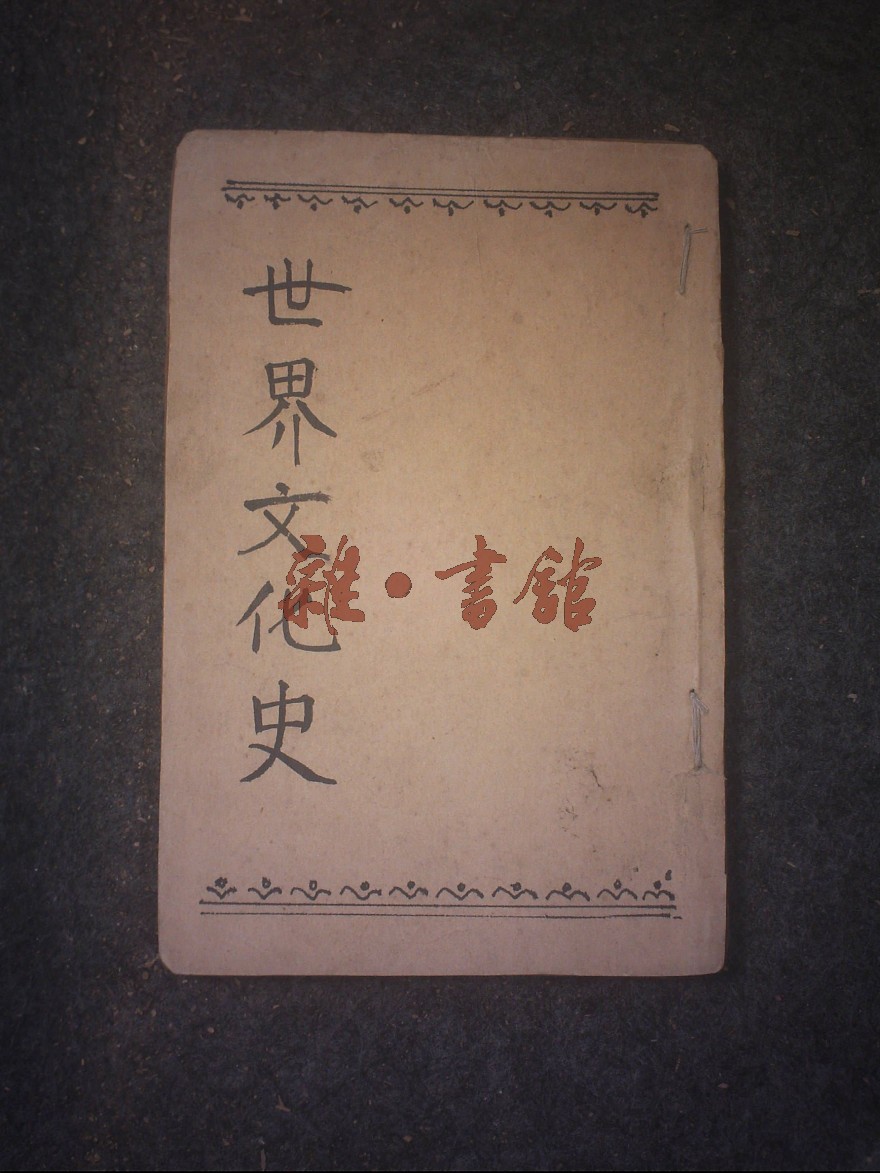 世界文化史
雜·書館